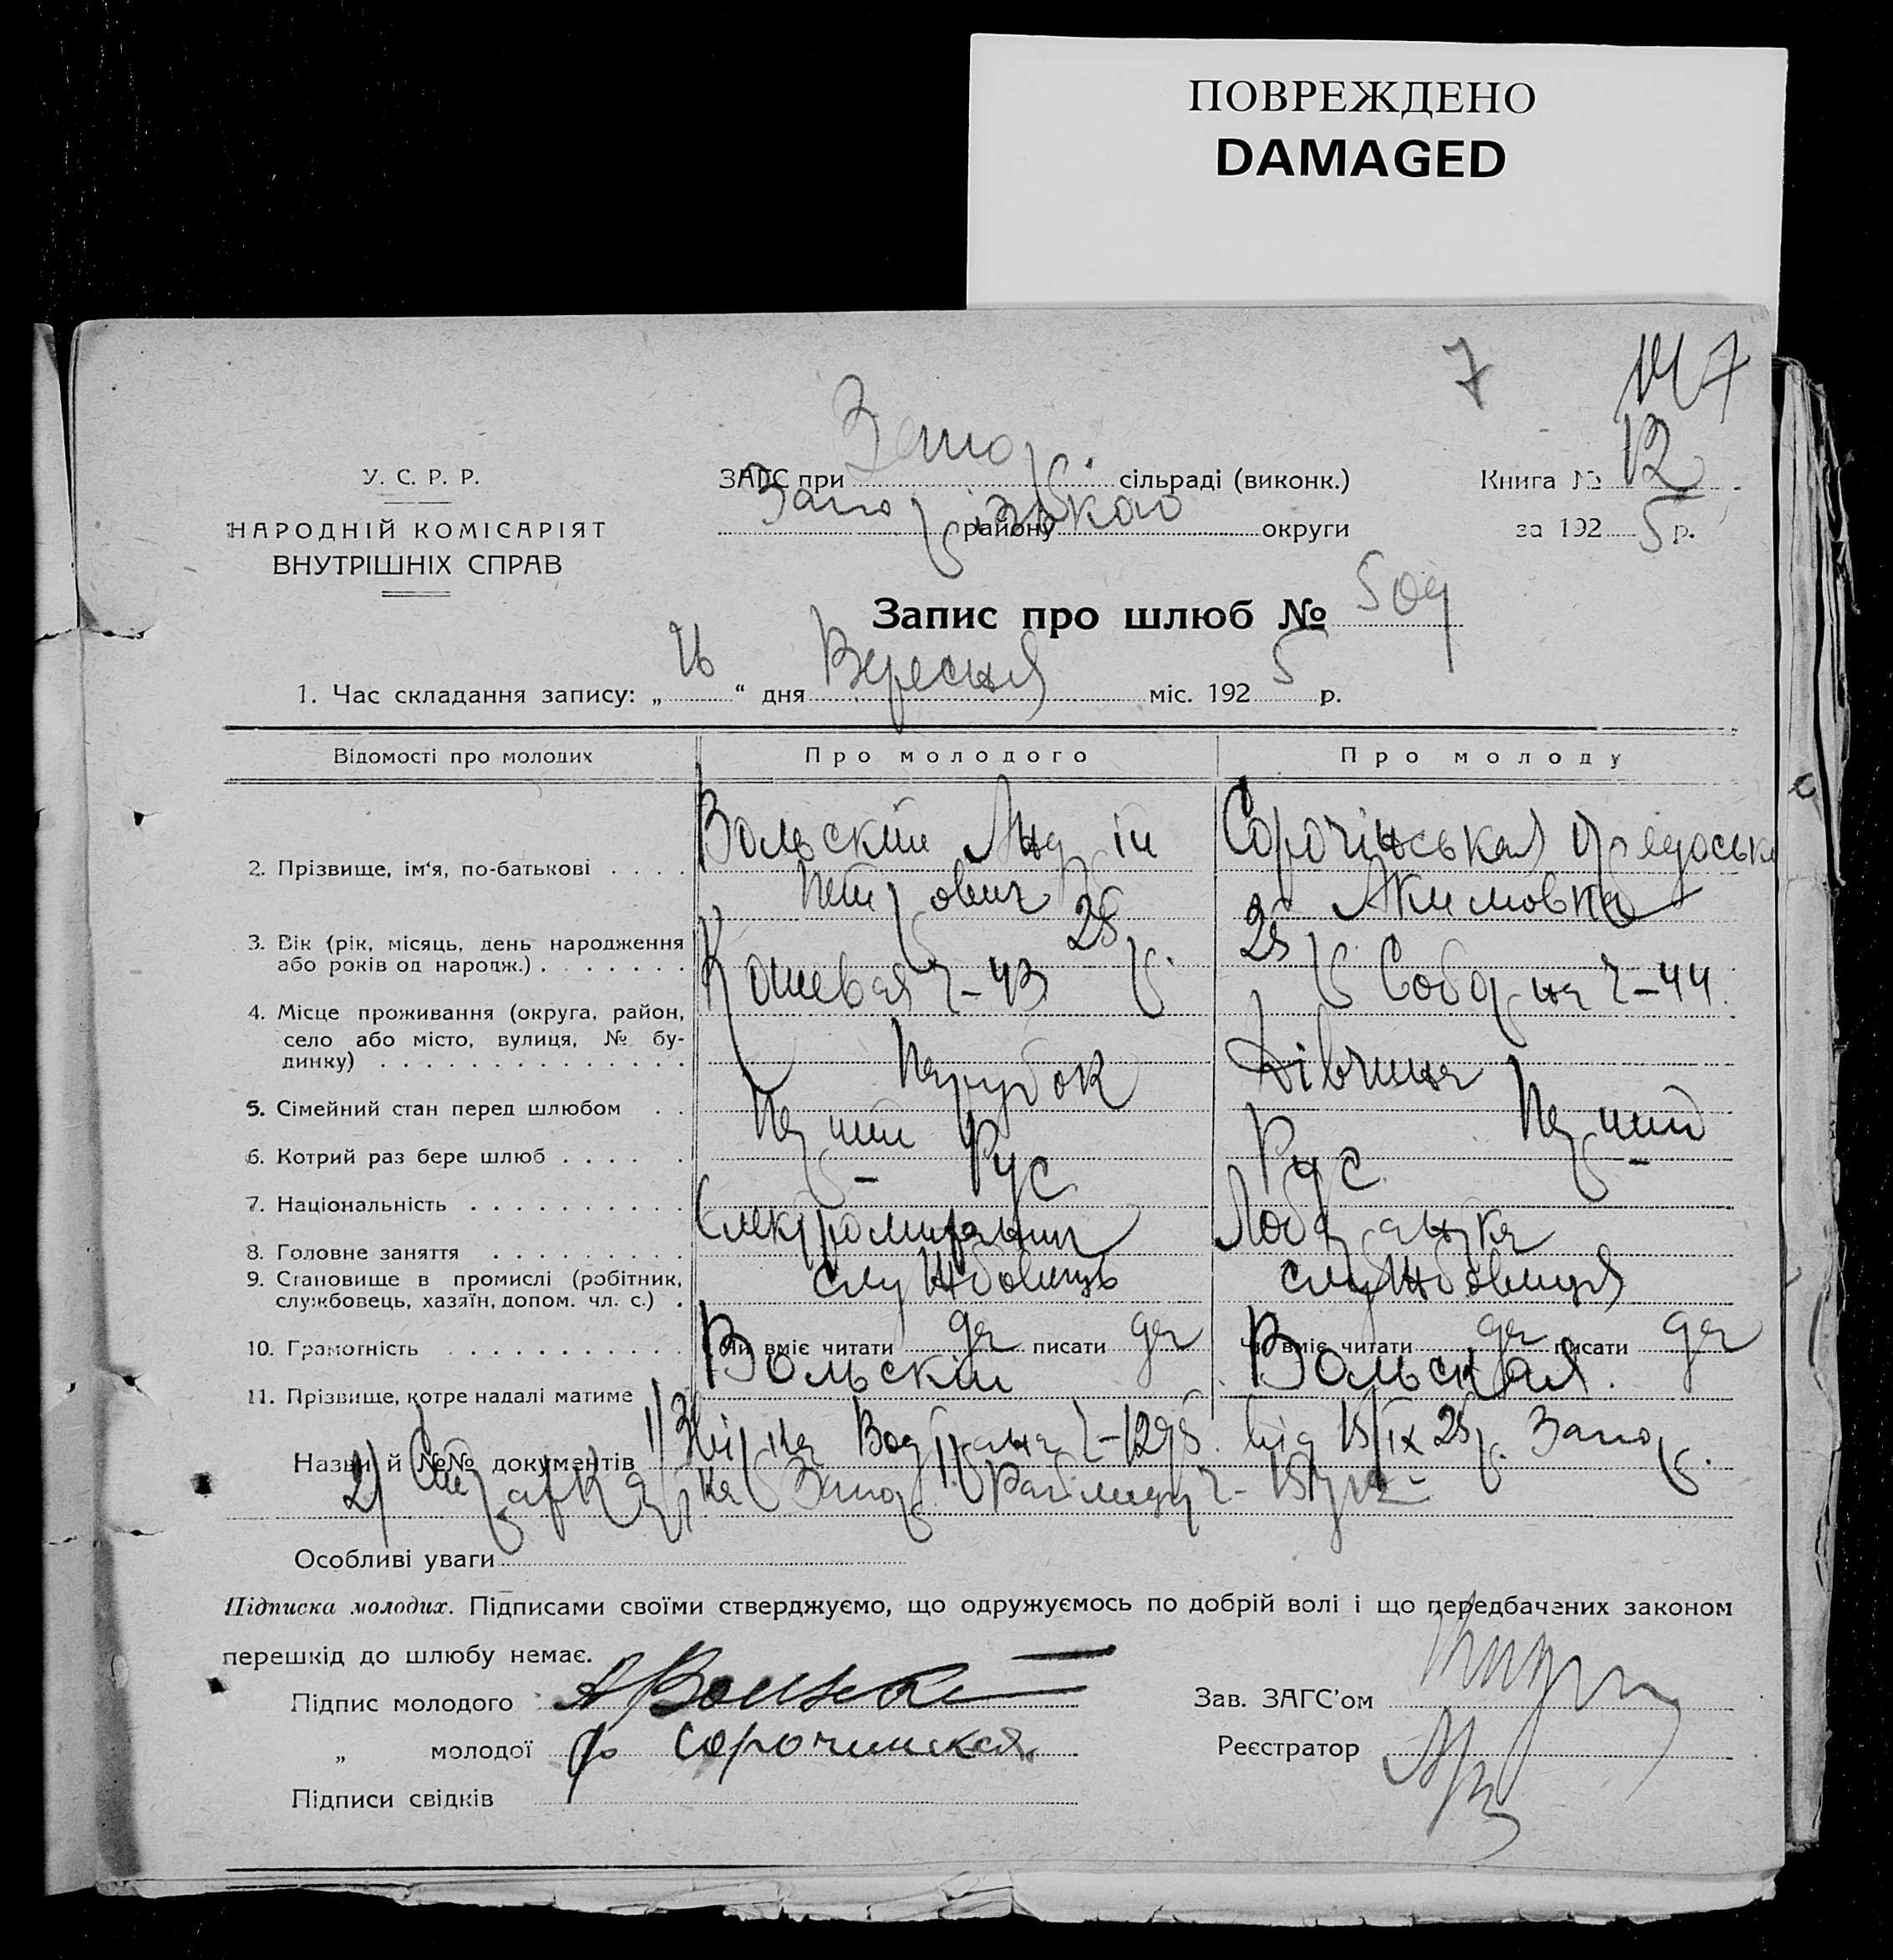 ПОВРЕЖДЕНО
DAMAGED
7
7
У. С. Р. Р.
НАРОДНІЙ КОМІСАРІЯТ
ВНУТРІШНІХ СПРАВ
ЗАГС при Запор. сільраді (виконк.)
Запорізького району округи
Книга № 12
за 1925 р.
Запис про шлюб № 509
1. Час складання запису: „16“ дня Вересня міс. 1925 р.
Відомості про молодих
Про молодого
Про молоду
2. Прізвище, ім‘я, по-батькові . . . . Вольский Андрій Петрович
Сорочінськая Федоська Акимовна
3. Вік (рік, місяць, день народження або років од народж.) . . . . . . . 25 р.
25 р
4. Місце проживання (округа, район, село або місто, вулиця, № будинку) . . . . . . . . . . . . . . Кошевая ч-43
Соборна ч-44
5. Сімейний стан перед шлюбом . . Парубок
Дівчина
6. Котрий раз бере шлюб . . . . . Перший
Перший
7. Національність . . . . . . . . . . Рус
Рус
8. Головне заняття . . . . . . . . .
9. Становище в промислі (робітник, службовець, хазяїн, допом. чл. с.) . службовець
службовиця
10. Грамотність . . . . . . . . . . . Чи вміє читати да писати да
Чи вміє читати да писати да
11. Прізвище, котре надалі матиме Вольскій
Вольская.
Назви й №№ документів 1) від 15/IX 25р. Запор.
2)
Особливі уваги
Підписка молодих. Підписами своїми стверджуємо, що одружуємось по добрій волі і що передбачених законом
перешкід до шлюбу немає.
Підпис молодого А Вольский
Зав. ЗАГС’ом
„ молодої Ф Сорочинская
Реєстратор
Підписи свідків